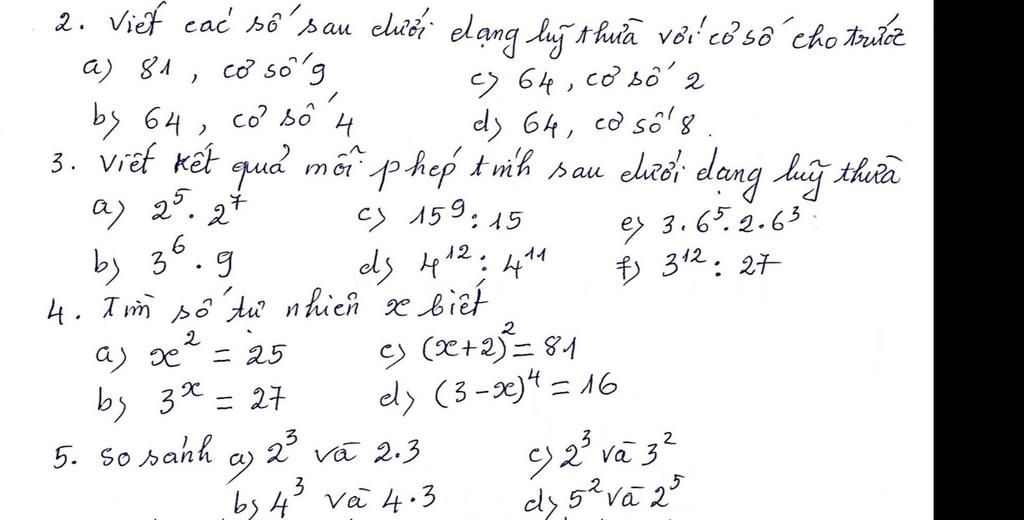 2. Viết các số sau dưới dạng luỹ thừa với cơ số cho trước
a) 81, cơ số 9 c) 64, cơ số 2
b) 64, cơ số 4 d) 64, cơ số 8.
3. Viết kết quả mỗi phép tính sau dưới dạng luỹ thừa
a) 2⁵. 2⁷ c) 15⁹ : 15 e) 3.6⁵.2.6³
b) 3⁶. 9 d) 4¹² : 4¹¹ f) 3¹² : 27
4. Tìm số tự nhiên x biết
a) x² = 25 c) (x+2)² = 81
b) 3ˣ = 27 d) (3-x)⁴ = 16
5. So sánh a) 2³ và 2.3 c) 2³ và 3²
b) 4³ và 4.3 d) 5² và 2⁵